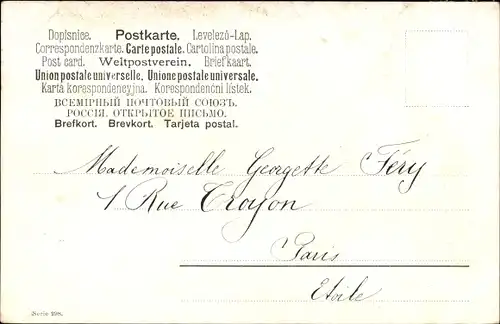 Dopisnice. Postkarte. Levelező-Lap.
Correspondenzkarte. Carte postale. Cartolina postale.
Post card. Weltpostverein. Briefkaart.
Union postale universelle. Unione postale universale.
Karta korespondencyjna. Korespondenční lístek.
ВСЕМІРНЫЙ ПОЧТОВЫЙ СОЮЗЪ.
РОССІЯ. ОТКРЫТОЕ ПИСЬМО.
Brefkort. Brevkort. Tarjeta postal.
Mademoiselle Georgette Féry
1 Rue Troyon
Paris
Etoile
Serie 198.